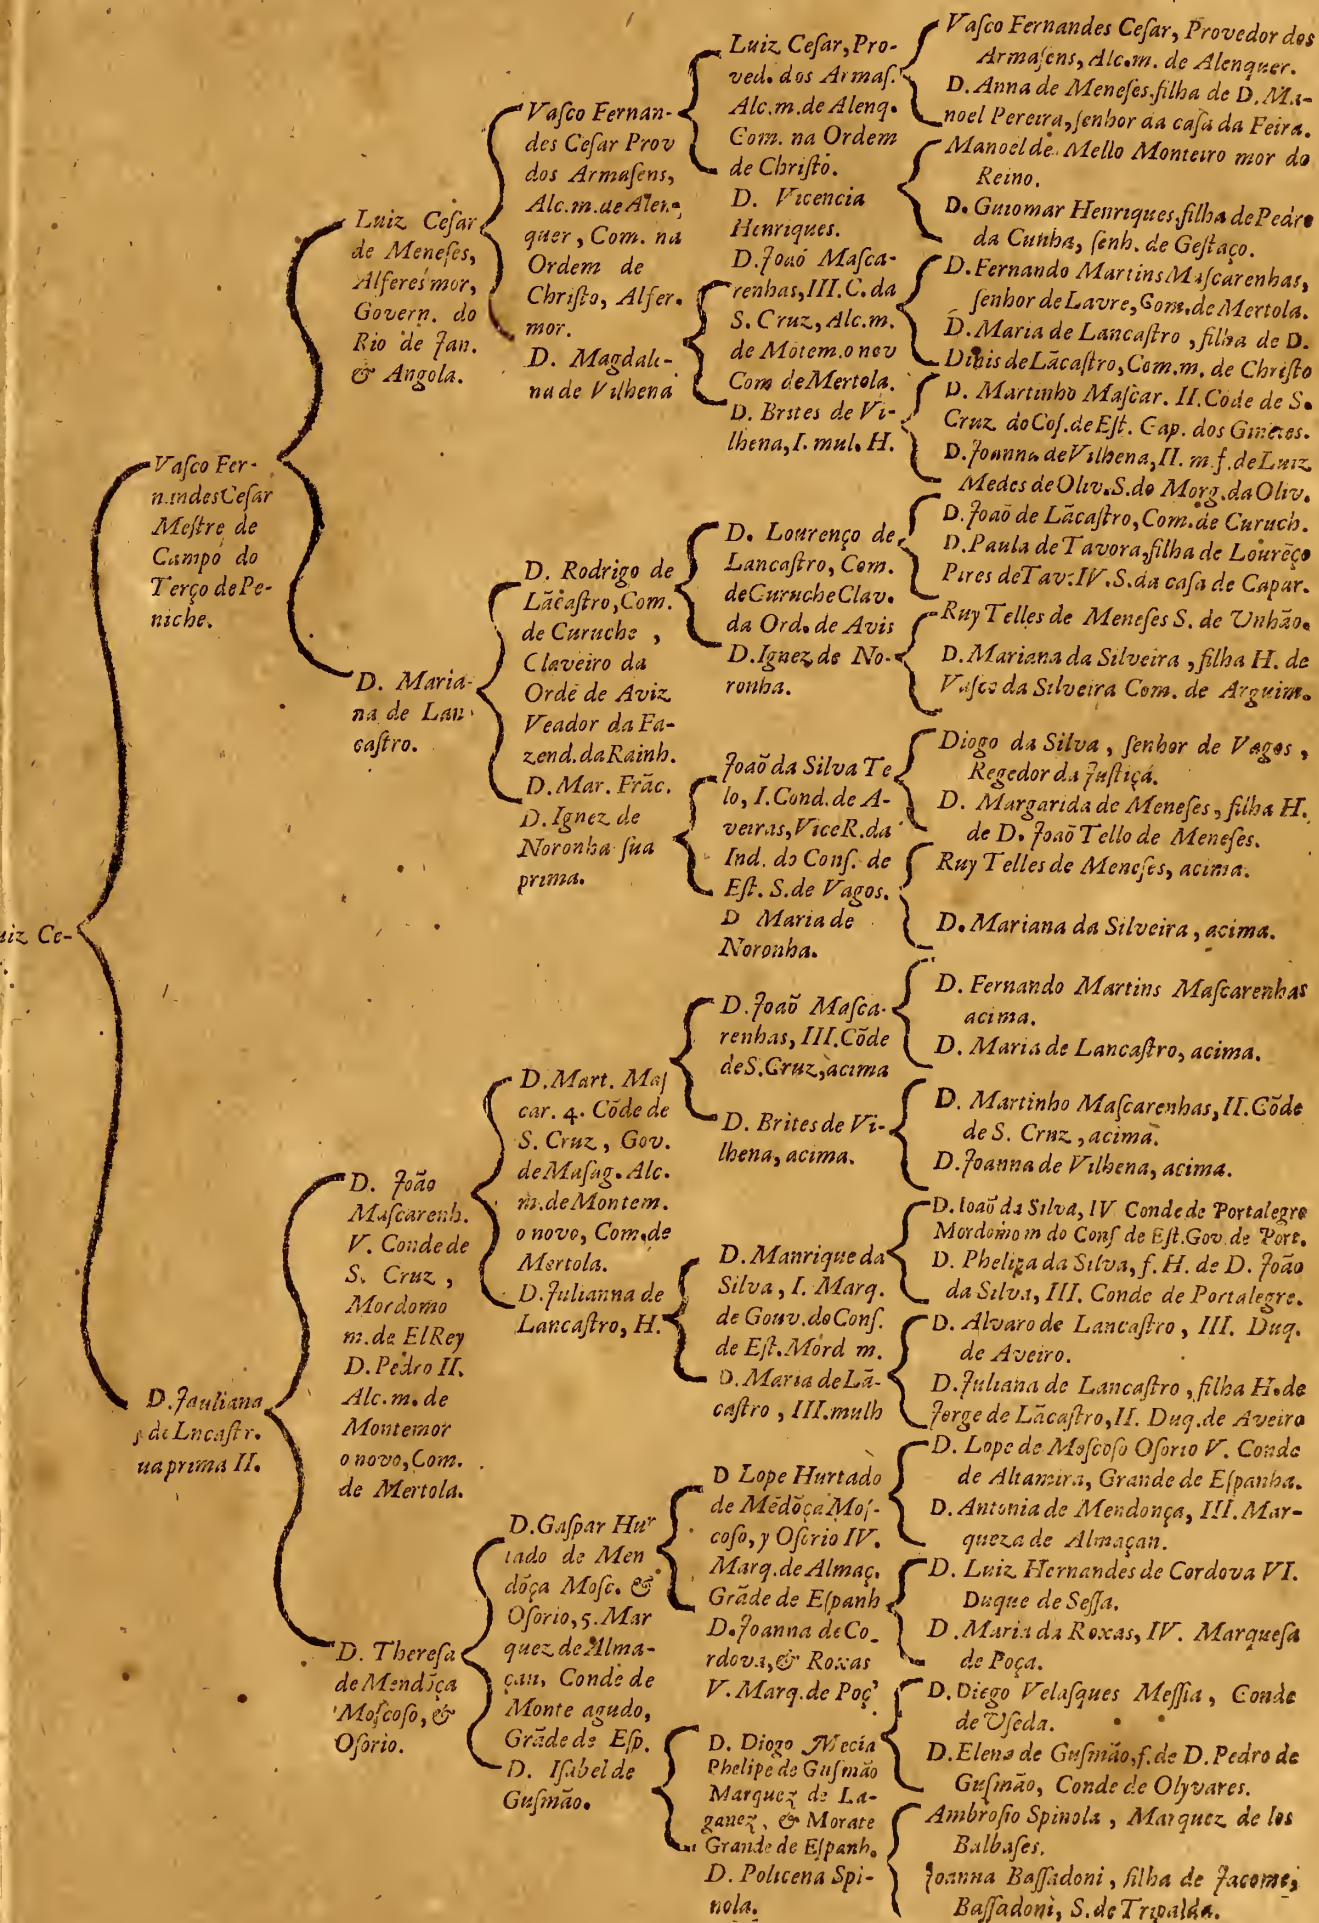 uiz Ce-
Vaſco Fer-
nandesCeſar
Meſtre de
Campo do
Terço de Pe-
niche.
D. Jauliana
de Lncaſtr.
ua prima II.
Luiz Ceſar
de Meneſes,
Alferes mor,
Govern. do
Rio de Jan.
& Angola.
D. Maria-
na de Lan-
caſtro.
D. João
Maſcarenh.
V. Conde de
S. Cruz,
Mordomo
m. de ElRey
D. Pedro II.
Alc. m. de
Montemor
o novo, Com.
de Mertola.
D. Thereſa
de Mendõça
Moſcoſo, &
Oſorio.
Vaſco Fernan-
des Ceſar Prov
dos Armaſens,
Alc.m. de Alen-
quer, Com. na
Ordem de
Chriſto, Alfer.
mor.
D. Magdale-
na de Vilhena
D. Rodrigo de
Lãcaſtro, Com.
de Curuche,
Claveiro da
Ordē de Aviz
Veador da Fa-
zend. da Rainh.
D. Mar. Frãc.
D. Ignez de
Noronha ſua
prima.
D. Mart. Maſ
car. 4. Cõde de
S. Cruz, Gov.
de Maſag. Alc.
m. de Montem.
o novo, Com. de
Mertola.
D. Julianna de
Lancaſtro, H.
D. Gaſpar Hur
tado de Men
dõça Moſc. &
Oſorio, 5. Mar
quez de Alma-
çan, Conde de
Monte agudo,
Grãde de Eſp.
D. Iſabel de
Guſmão.
Luiz Ceſar, Pro-
ved. dos Armaſ.
Alc. m. de Alenq.
Com. na Ordem
de Chriſto.
D. Vicencia
Henriques.
D. Joaõ Maſca-
renhas, III. C. da
S. Cruz, Alc. m.
de Mõtem. o nov
Com de Mertola.
D. Brites de Vi-
lhena, I. mul. H.
D. Lourenço de
Lancaſtro, Com.
de Curuche Clav.
da Ord. de Avis
D. Ignez de No-
ronha.
Joaõ da Silva Te
lo, I. Cond. de A-
veiras, ViceR. da
Ind. do Conſ. de
Eſt. S. de Vagos.
D Maria de
Noronha.
D. Joaõ Maſca-
renhas, III. Cõde
de S. Cruz, acima
D. Brites de Vi-
lhena, acima.
D. Manrique da
Silva, I. Marq.
de Gouv. do Conſ.
de Eſt. Mord m.
D. Maria de Lã-
caſtro, III. mulh
D Lope Hurtado
de Mēdõça Moſ-
coſo, y Oſorio IV.
Marq. de Almaç.
Grãde de Eſpanh
D. Joanna de Co-
rdova, & Roxas
V. Marq. de Poç
D. Diogo Mecia
Phelipe de Guſmão
Marquez de La-
ganez, & Morate
Grande de Eſpanh.
D. Policena Spi-
nola.
Vaſco Fernandes Ceſar, Provedor dos
Armaſens, Alc. m. de Alenquer.
D. Anna de Meneſes, filha de D. Ma-
noel Pereira, ſenhor da caſa da Feira.
Manoel de Mello Monteiro mor do
Reino.
D. Guiomar Henriques, filha de Pedro
da Cunha, ſenh. de Geſtaço.
D. Fernando Martins Maſcarenhas,
ſenhor de Lavre, Com. de Mertola.
D. Maria de Lancaſtro, filha de D.
Dinis de Lãcaſtro, Com. m. de Chriſto
D. Martinho Maſcar. II. Cõde de S.
Cruz do Coſ. de Eſt. Cap. dos Ginetes.
D. Joanna de Vilhena, II. m. f. de Luiz
Medes de Oliv. S. do Morg. da Oliv.
D. Joaõ de Lãcaſtro, Com. de Curuch.
D. Paula de Tavora, filha de Lourēço
Pires de Tav. IV. S. da caſa de Capar.
Ruy Telles de Meneſes S. de Unhão.
D. Mariana da Silveira, filha H. de
Vaſco da Silveira Com. de Arguim.
Diogo da Silva, ſenhor de Vagos,
Regedor da Juſtiça.
D. Margarida de Meneſes, filha H.
de D. Joaõ Tello de Meneſes.
Ruy Telles de Meneſes, acima.
D. Mariana da Silveira, acima.
D. Fernando Martins Maſcarenhas
acima.
D. Maria de Lancaſtro, acima.
D. Martinho Maſcarenhas, II. Cõde
de S. Cruz, acima.
D. Joanna de Vilhena, acima.
D. Ioaõ da Silva, IV Conde de Portalegre
Mordomo m do Conſ de Eſt. Gov. de Port.
D. Pheliza da Silva, f. H. de D. João
da Silva, III. Conde de Portalegre.
D. Alvaro de Lancaſtro, III. Duq.
de Aveiro.
D. Juliana de Lancaſtro, filha H. de
Jorge de Lãcaſtro, II. Duq. de Aveiro
D. Lope de Moſcoſo Oſorio V. Conde
de Altamira, Grande de Eſpanha.
D. Antonia de Mendonça, III. Mar-
queza de Almaçan.
D. Luiz Hernandes de Cordova VI.
Duque de Seſſa.
D. Maria da Roxas, IV. Marqueſa
de Poça.
D. Diego Velaſques Meſſia, Conde
de Uſeda.
D. Elena de Guſmão, f. de D. Pedro de
Guſmão, Conde de Olyvares.
Ambroſio Spinola, Marquez de los
Balbaſes.
Joanna Baſſadoni, filha de Jacome,
Baſſadoni, S. de Tripalda.